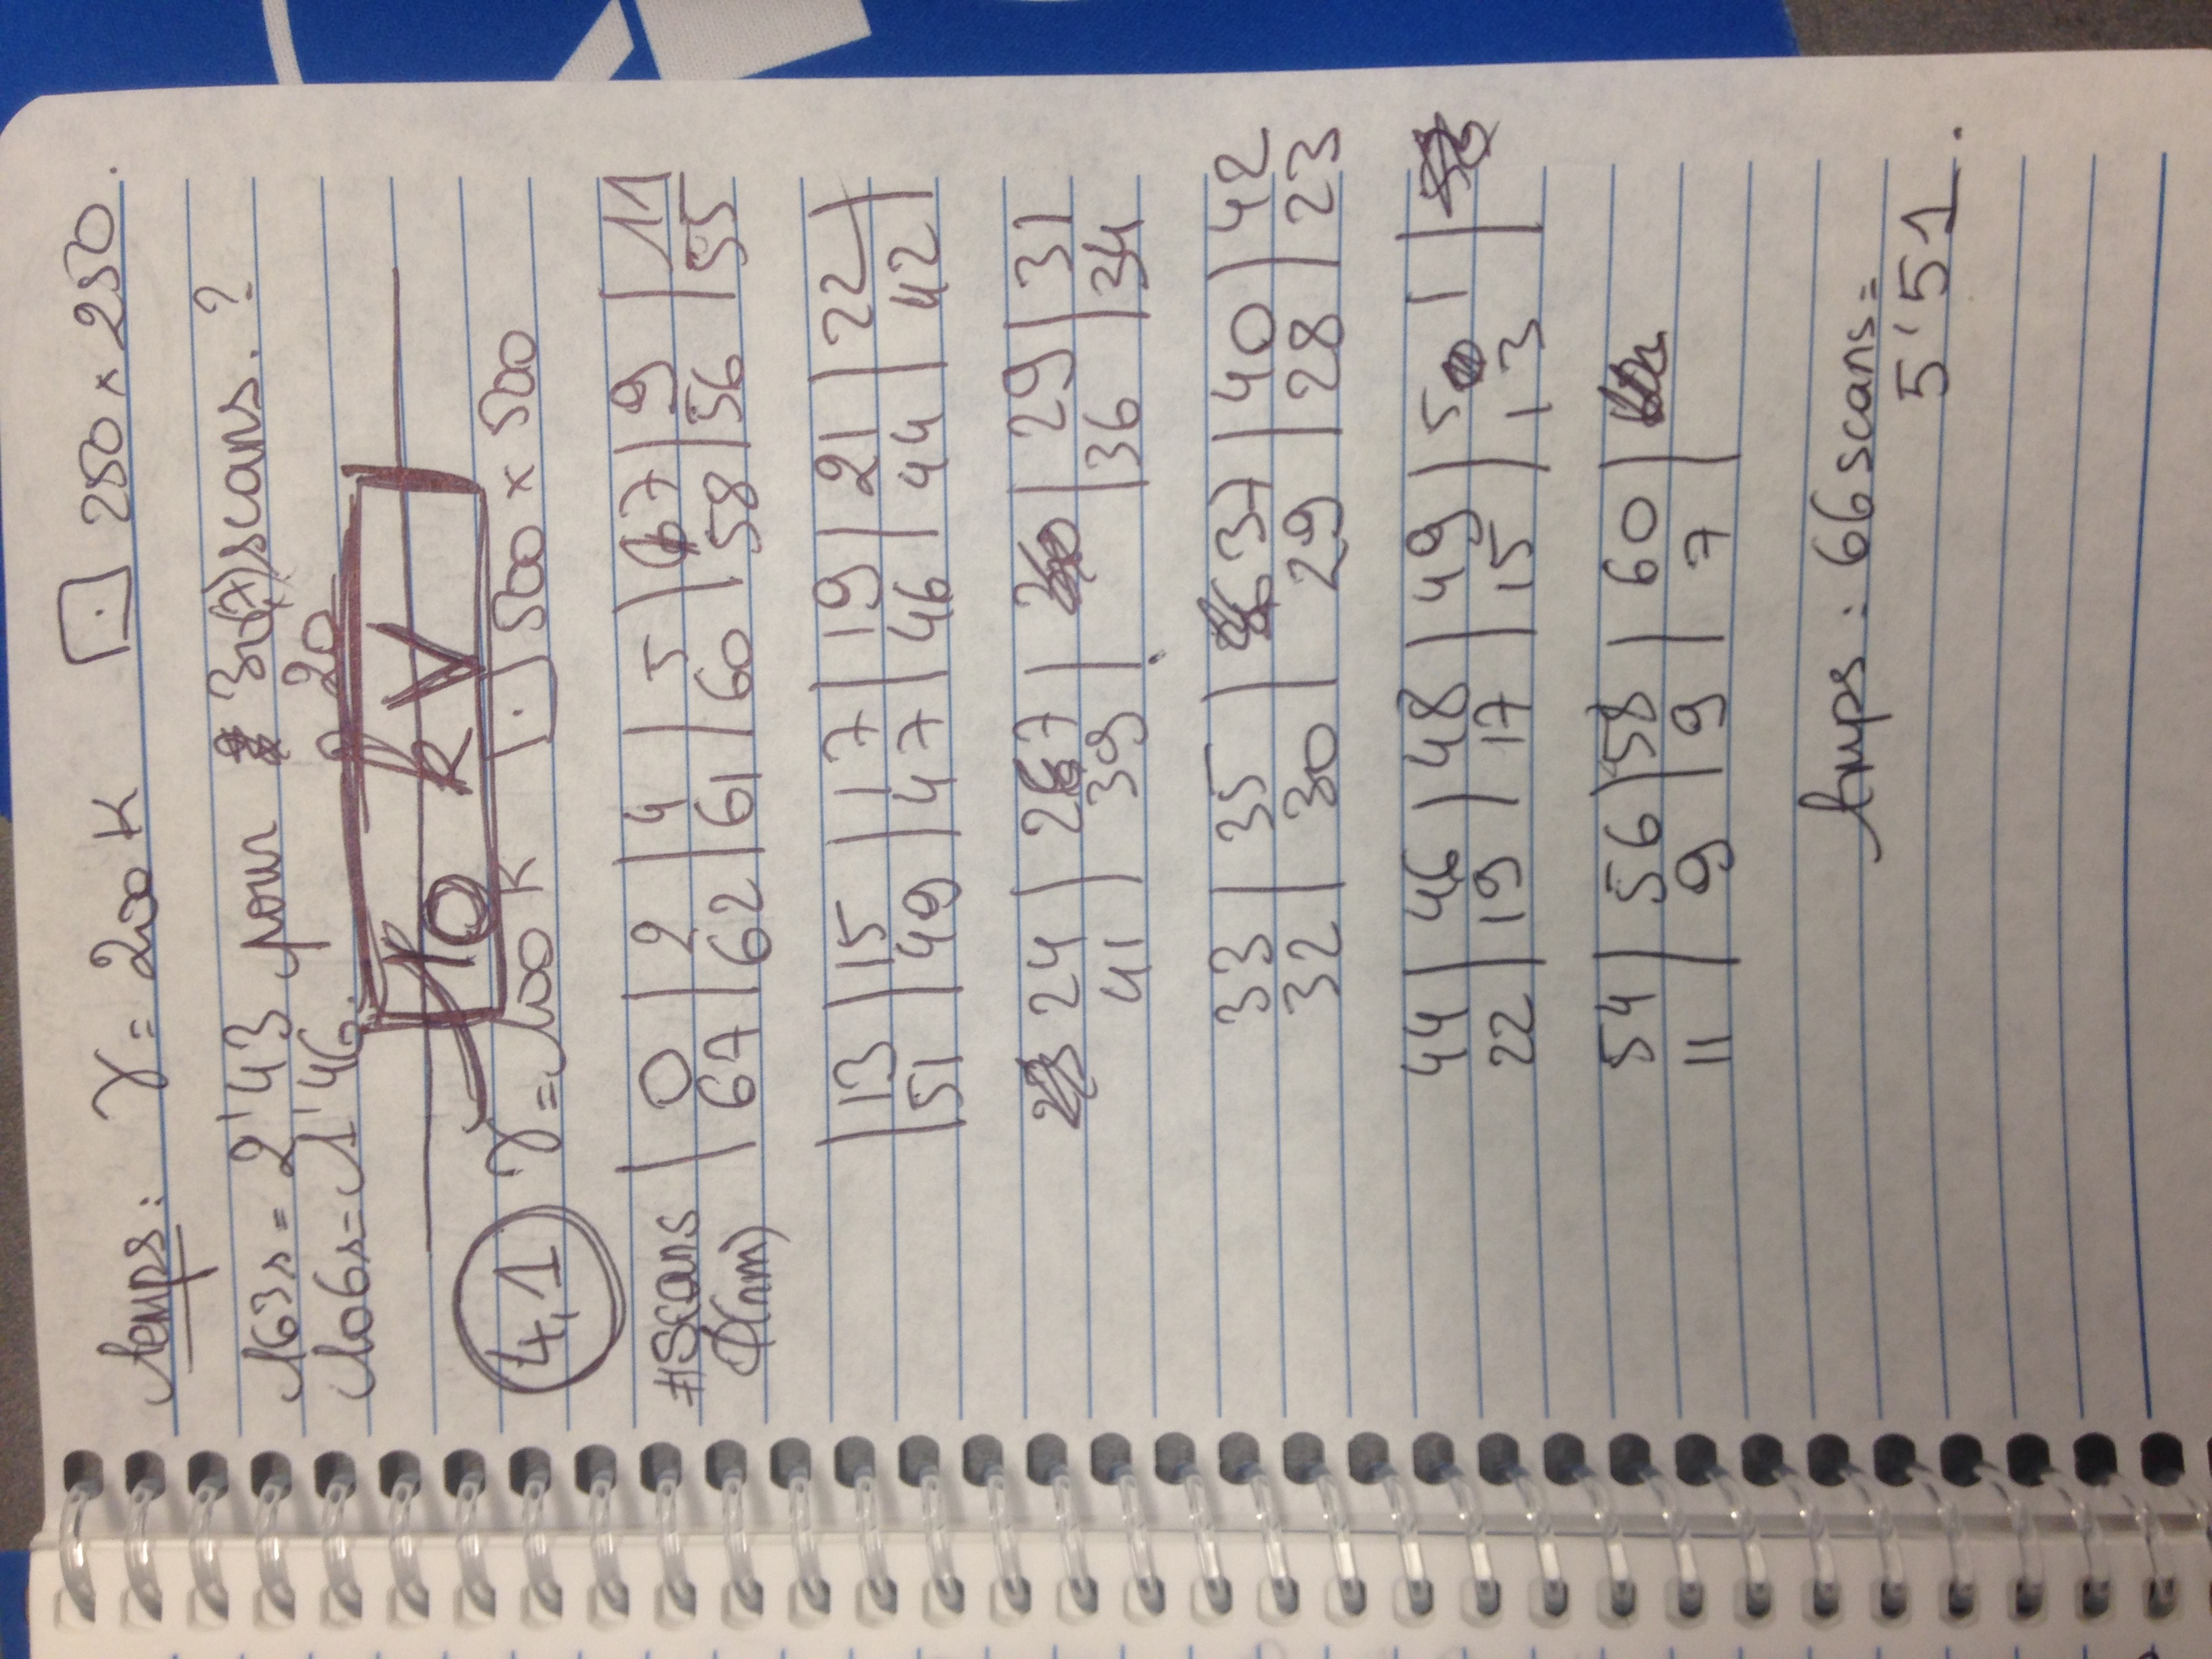 temps : γ = 200 K ⊡ 250 × 250.
163s = 2'43 pour 30(7) scans. ?
106s = 1'46. 20
10 kV
4,1 γ = 100 K ⊡ 500 × 500
#scans | 0 | 2 | 4 | 5 | 7 | 9 | 11
Φ(nm) | 67 | 62 | 61 | 60 | 58 | 56 | 55
| 13 | 15 | 17 | 19 | 21 | 22 |
| 51 | 49 | 47 | 46 | 44 | 42 |
24 | 27 | | 29 | 31
41 | 39 | | 36 | 34
33 | 35 | 37 | 40 | 42
32 | 30 | 29 | 28 | 23
44 | 46 | 48 | 49 | 51 |
22 | 19 | 17 | 15 | 13 |
54 | 56 | 58 | 60 |
11 | 9 | 9 | 7 |
temps : 66 scans =
5'51.